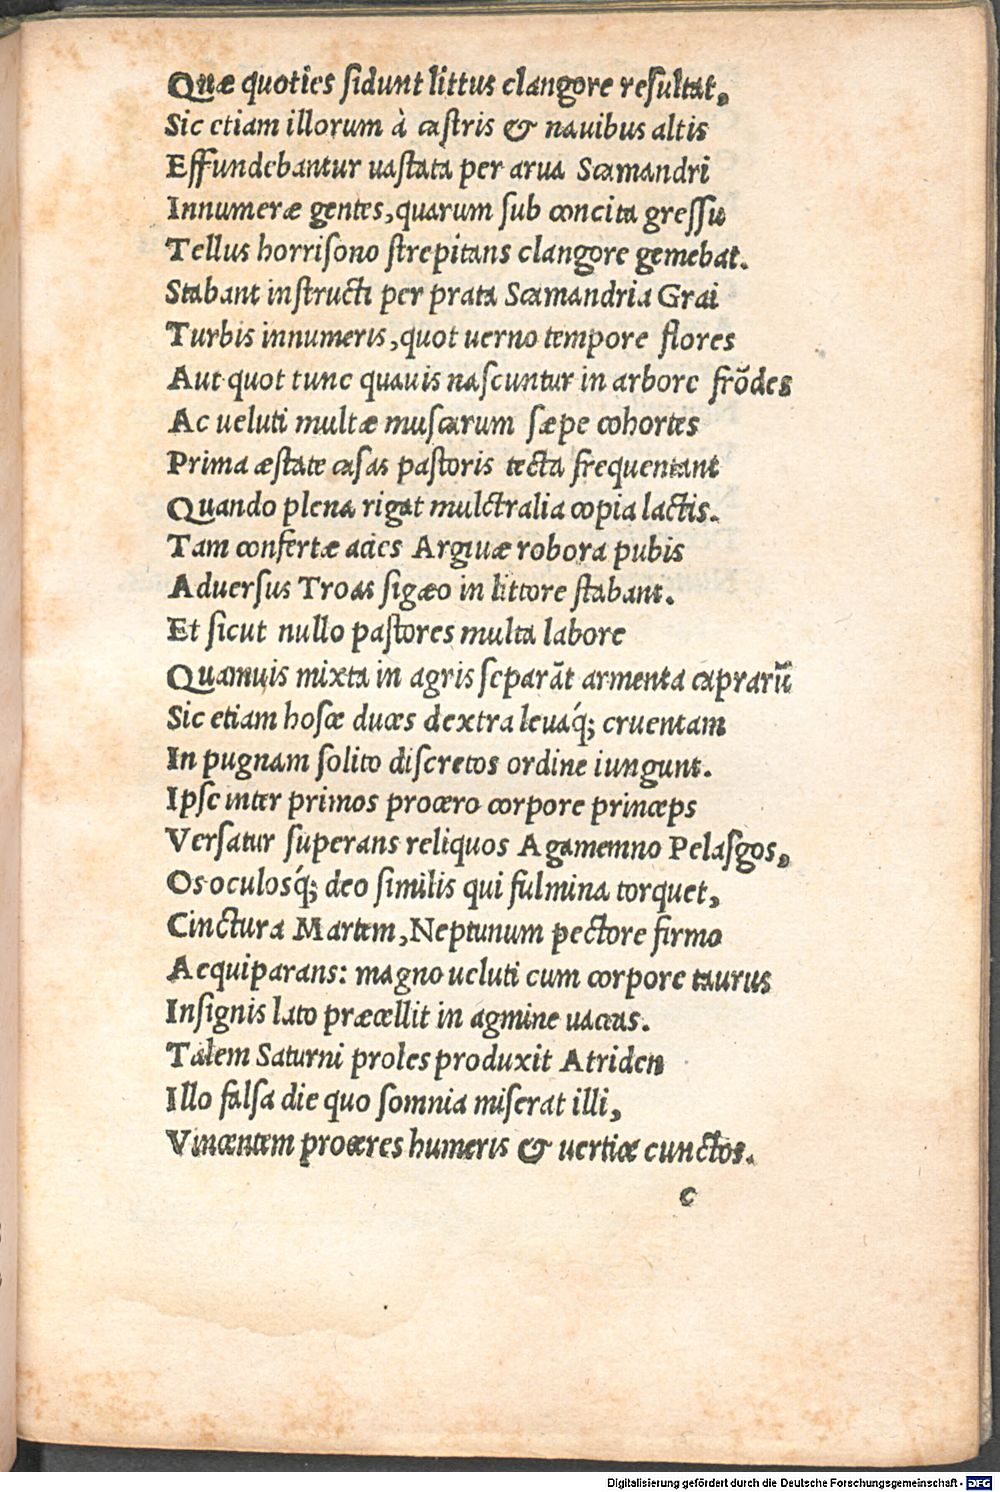 Quæ quoties sidunt littus clangore resultat,
Sic etiam illorum à castris & nauibus altis
Effundebantur uastata per arua Scamandri
Innumeræ gentes, quarum sub concita gressu
Tellus horrisono strepitans clangore gemebat.
Stabant instructi per prata Scamandria Grai
Turbis innumeris, quot uerno tempore flores
Aut quot tunc quauis nascuntur in arbore frõdes
Ac ueluti multæ muscarum sæpe cohortes
Prima æstate casas pastoris tecta frequentant
Quando plena rigat mulctralia copia lactis.
Tam confertæ acies Argiuæ robora pubis
Aduersus Troas sigæo in littore stabant.
Et sicut nullo pastores multa labore
Quamuis mixta in agris separãt armenta caprarũ
Sic etiam hosce duces dextra leuaq́; cruentam
In pugnam solito discretos ordine iungunt.
Ipse inter primos procero corpore princeps
Versatur superans reliquos Agamemno Pelasgos,
Os oculosq́; deo similis qui fulmina torquet,
Cinctura Martem, Neptunum pectore firmo
Aequiparans: magno ueluti cum corpore taurus
Insignis lato præcellit in agmine uaccas.
Talem Saturni proles produxit Atriden
Illo falsa die quo somnia miserat illi,
Vincentem proceres humeris & uertice cunctos.
c
Digitalisierung gefördert durch die Deutsche Forschungsgemeinschaft - DFG